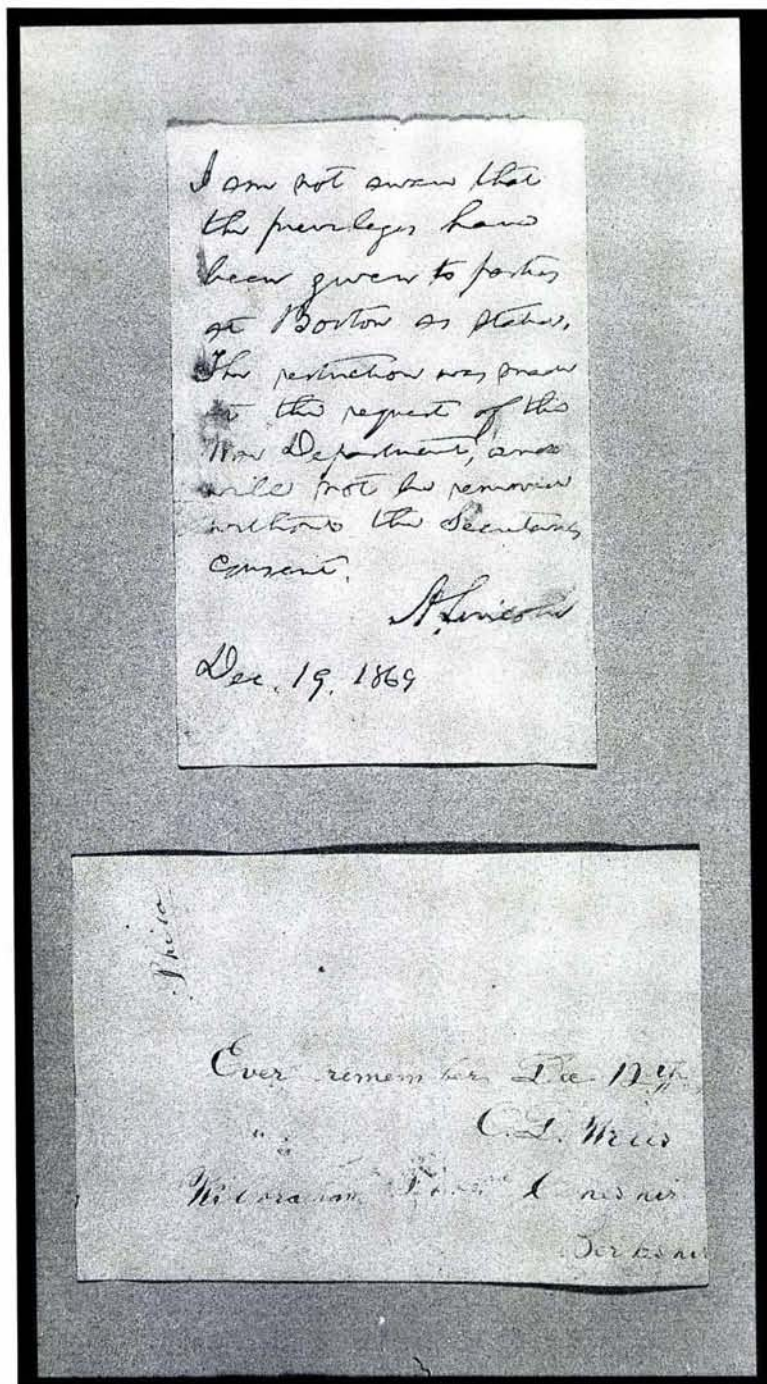 I am not aware that
the previleges have
been given to parties
at Boston as stated.
The restriction was made
at the request of the
War Department, and
will not be removed
without the Secretarys
consent.
A. Lincoln
Dec. 19. 1864
Phila
Ever remember Dec 12th
C. L.
Wilbraham